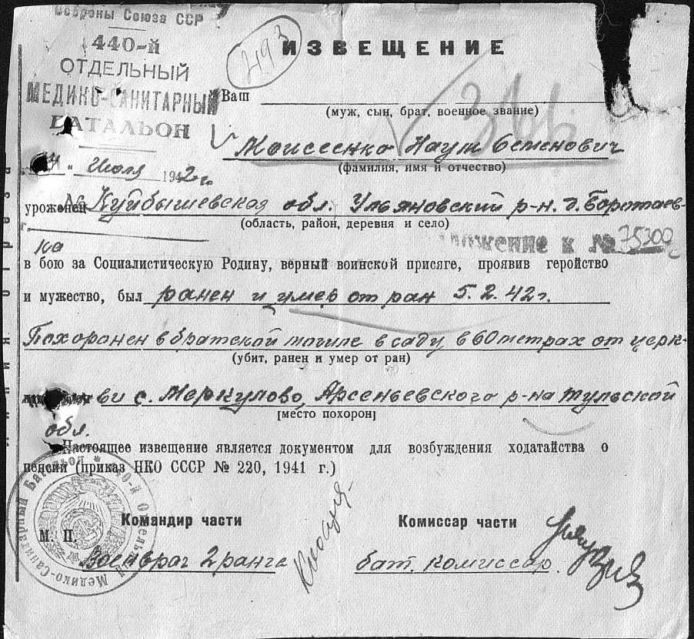 Обороны Союза ССР
440-й
ОТДЕЛЬНЫЙ
МЕДИКО-САНИТАРНЫЙ
БАТАЛЬОН
Июля 1942 г.
493
ИЗВЕЩЕНИЕ
Ваш
(муж, сын, брат, военное звание)
Моисеенко Наум Семенович
(фамилия, имя и отчество)
уроженец Куйбышевская обл. Ульяновский р-н. д.
(область, район, деревня и село)
к № 75300
в бою за Социалистическую Родину, верный воинской присяге, проявив геройство
и мужество, был ранен и умер от ран 5.2.42 г.
Похоронен в братской могиле в саду в 60 метрах от церк-
(убит, ранен и умер от ран)
ви с. Меркулово, Арсеньевского р-на Тульской
(место похорон)
обл.
Настоящее извещение является документом для возбуждения ходатайства о
пенсии (приказ НКО СССР № 220, 1941 г.)
М. П.
Командир части
Комиссар части
Военврач 2 ранга
бат. комиссар